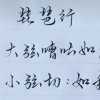 琵琶行
大弦嘈嘈如
小弦切:如